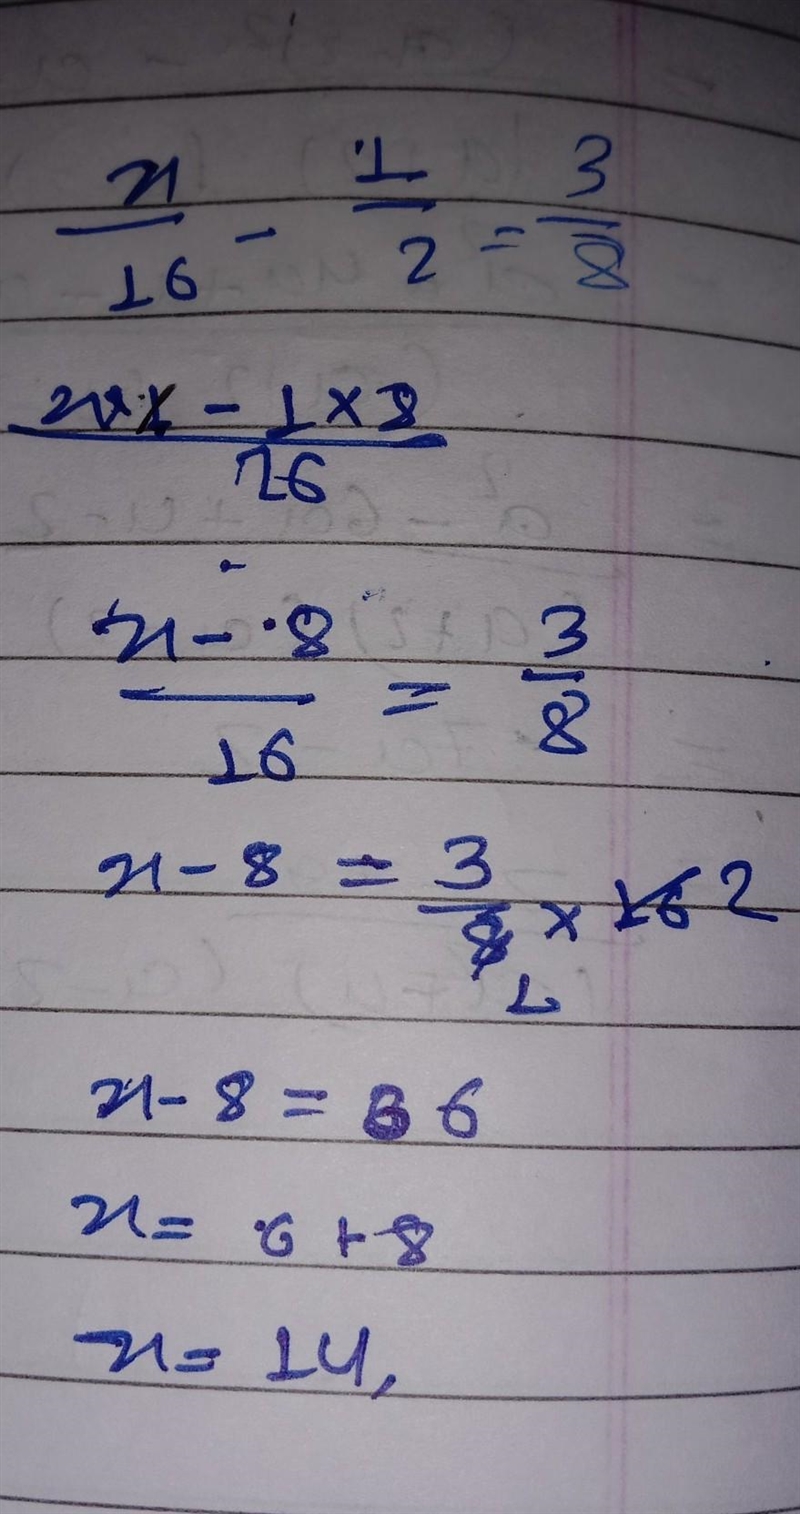 x/16 - 1/2 = 3/8
x×1 - 1×8 / 16
x - 8 / 16 = 3/8
x - 8 = 3/8 1 × 16 2
x - 8 = 6
x = 6 + 8
x = 14,